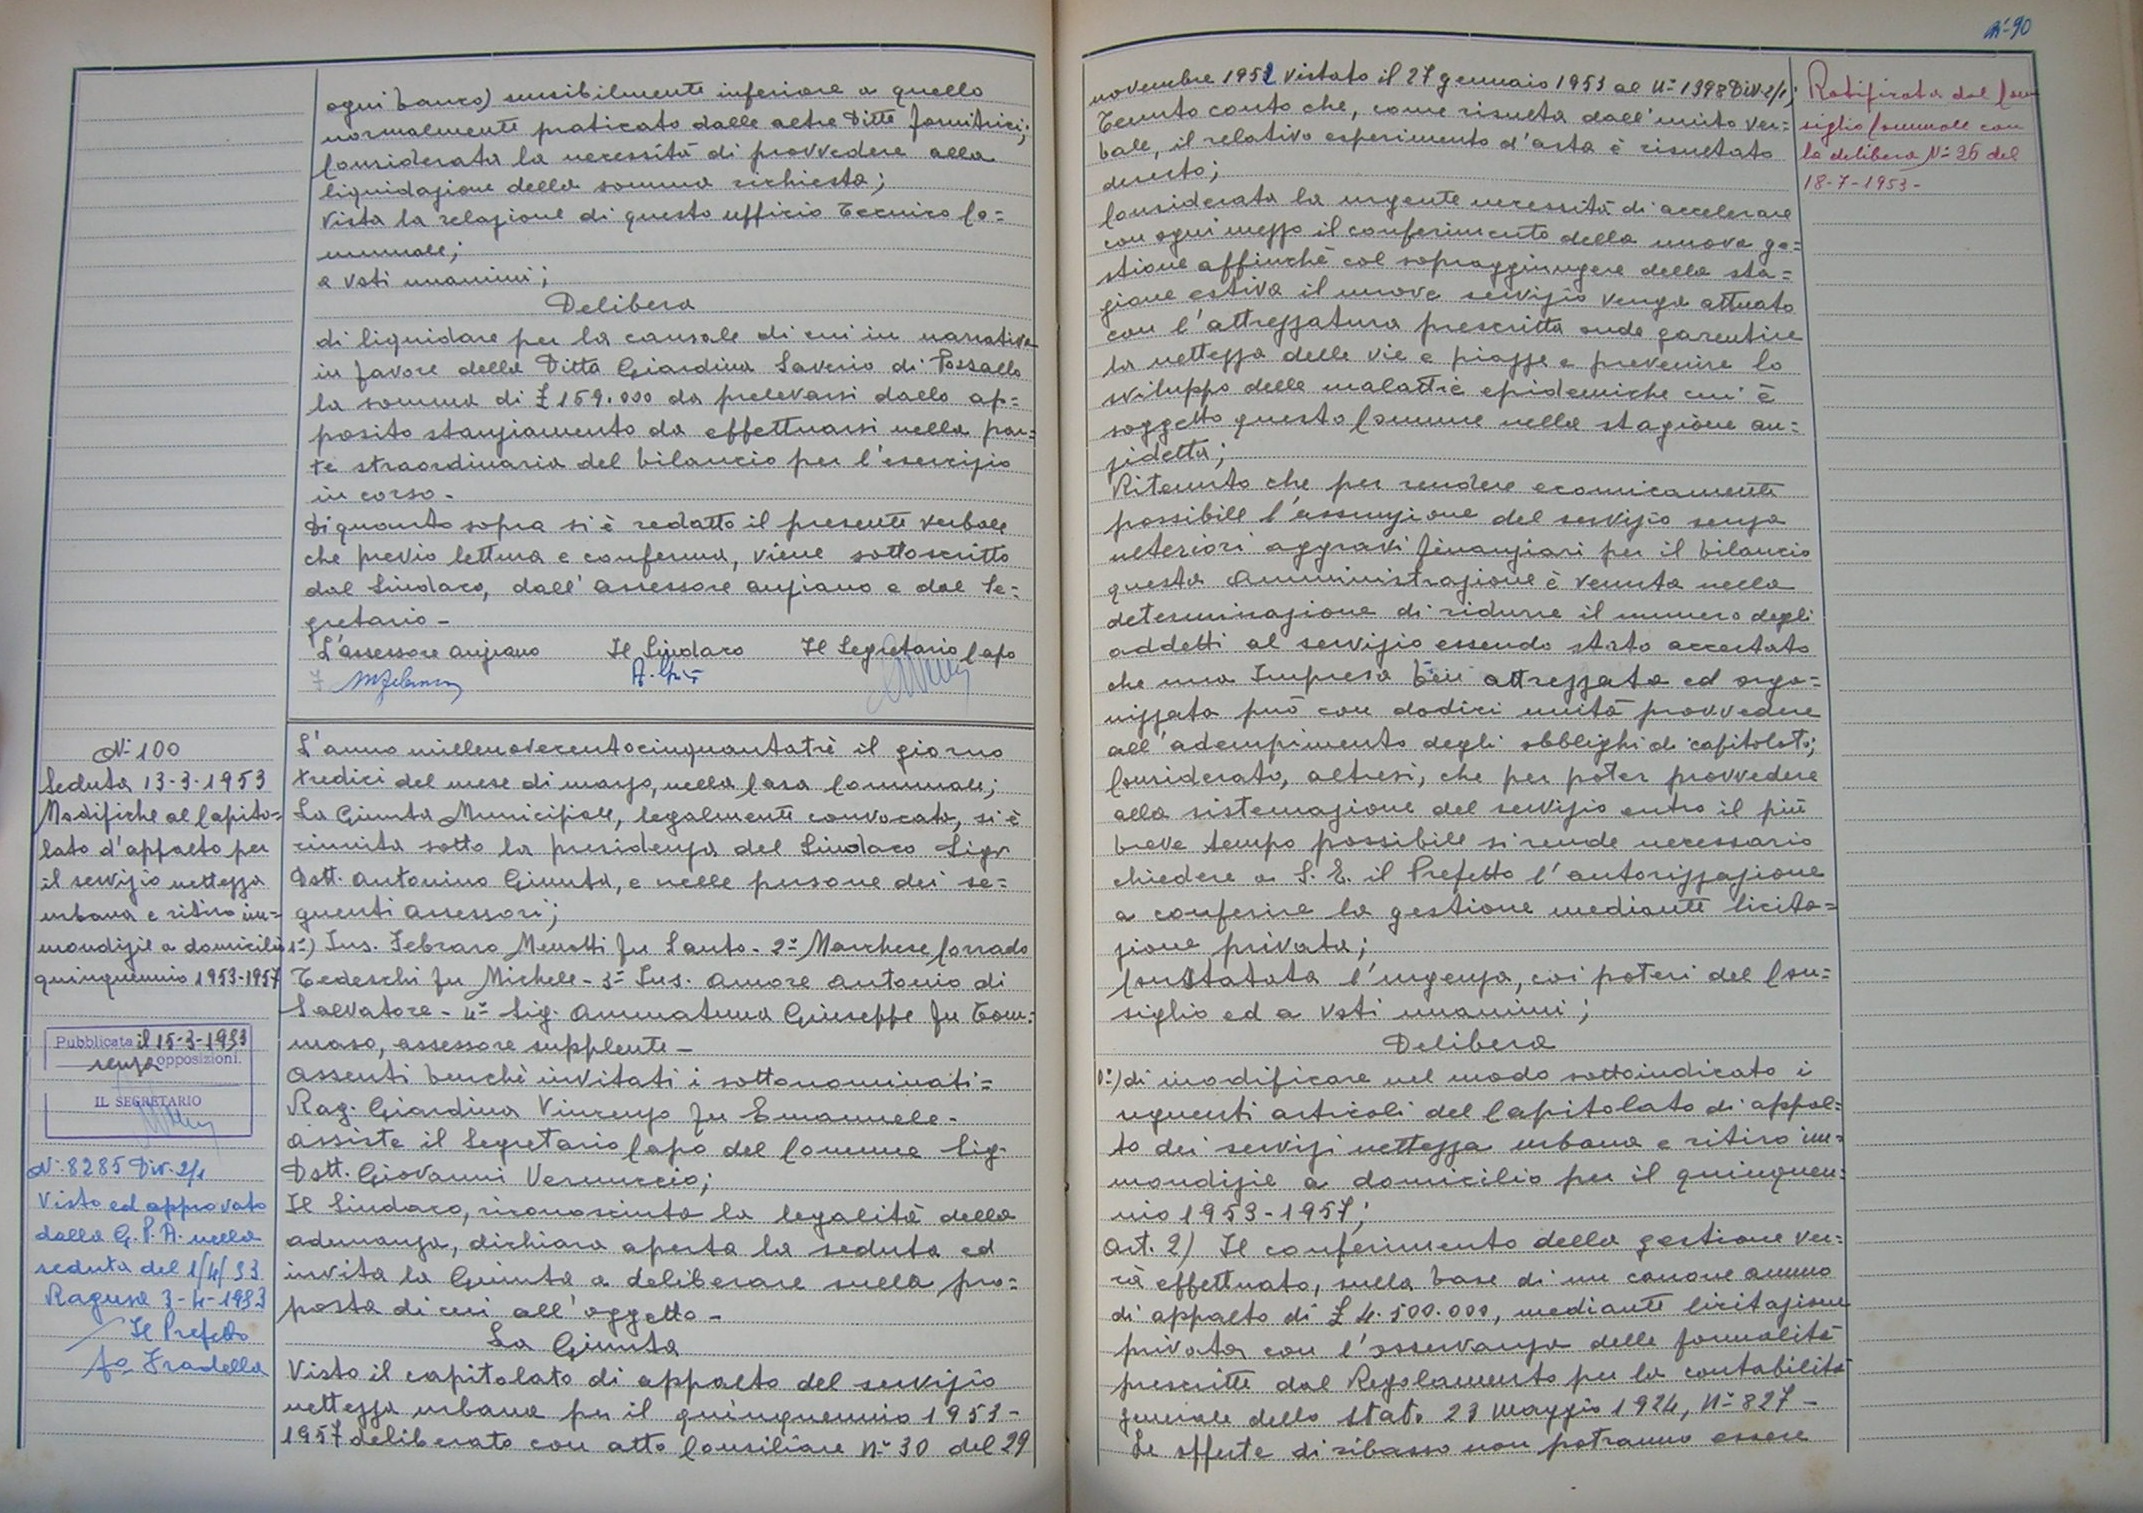 ogni banco) sensibilmente inferiore a quello
normalmente praticato dalle altre Ditte fornitrici;
Considerata la necessità di provvedere alla
liquidazione della somma richiesta;
Vista la relazione di questo ufficio Tecnico Co=
munale;
a voti unanimi;
Delibera
di liquidare per la causale di cui in narrativa
in favore della Ditta Giardina Saverio di Pozzallo
la somma di £ 159.000 da prelevarsi dallo ap=
posito stanziamento da effettuarsi nella par=
te straordinaria del bilancio per l'esercizio
in corso -
Di quanto sopra si è redatto il presente verbale
che previo lettura e conferma, viene sottoscritto
dal Sindaco, dall'assessore anziano e dal Se=
gretario -
L'assessore anziano Il Sindaco Il Segretario Capo
N° 100
Seduta 13-3-1953
Modifiche al Capito=
lato d'appalto per
il servizio nettezza
urbana e ritiro im=
mondizie a domicilio
quinquennio 1953-1957
Pubblicata il 15-3-1953
senza opposizioni.
IL SEGRETARIO
N° 8285 Div. 2/1
Visto ed approvato
dalla G. P. A. nella
seduta del 1/4/53
Ragusa 3-4-1953
Il Prefetto
fo Fradella
L'anno millenovecentocinquantatrè il giorno
tredici del mese di marzo, nella Casa Comunale;
La Giunta Municipale, legalmente convocata, si è
riunita sotto la presidenza del Sindaco Sigr
Dott. Antonino Giunta, e nelle persone dei se=
guenti assessori;
1°) Ins. Febraro Menotti fu Santo - 2° Marchese Corrado
Tedeschi fu Michele - 3° Ins. Amore Antonio di
Salvatore - 4° Sig. Ammatuna Giuseppe fu Tom=
maso, assessore supplente -
Assenti benchè invitati i sottonominati =
Rag. Giardina Vincenzo fu Emanuele -
Assiste il Segretario Capo del Comune Sig.
Dott. Giovanni Vernuccio;
Il Sindaco, riconosciuta la legalità della
adunanza, dichiara aperta la seduta ed
invita la Giunta a deliberare sulla pro=
posta di cui all'oggetto -
La Giunta
Visto il capitolato di appalto del servizio
nettezza urbana per il quinquennio 1953-
1957 deliberato con atto Consiliare N° 30 del 29
90
novembre 1952 vistato il 27 gennaio 1953 al N° 1398 Div. 2/1;
Tenuto conto che, come risulta dall'unito ver=
bale, il relativo esperimento d'asta è risultato
deserto;
Considerata la urgente necessità di accelerare
con ogni mezzo il conferimento della nuova ge=
stione affinchè col sopraggiungere della sta=
gione estiva il nuovo servizio venga attuato
con l'attrezzatura prescritta onde garentire
la nettezza delle vie e piazze e prevenire lo
sviluppo delle malattie epidemiche cui è
soggetto questo Comune nella stagione an=
zidetta;
Ritenuto che per rendere ecomicamente
possibile l'assunzione del servizio senza
ulteriori aggravi finanziari per il bilancio
questa Amministrazione è venuta nella
determinazione di ridurre il numero degli
addetti al servizio essendo stato accertato
che una Impresa ben attrezzata ed orga=
nizzata può con dodici unità provvedere
all'adempimento degli obblighi di capitolato;
Considerato, altresì, che per poter provvedere
alla sistemazione del servizio entro il più
breve tempo possibile si rende necessario
chiedere a S. E. il Prefetto l'autorizzazione
a conferire la gestione mediante licita=
zione privata;
Constatata l'urgenza, coi poteri del Con=
siglio ed a voti unanimi;
Delibera
1°) di modificare nel modo sottoindicato i
seguenti articoli del Capitolato di appal=
to dei servizi nettezza urbana e ritiro im=
mondizie a domicilio per il quinquen=
nio 1953-1957;
Art. 2) Il conferimento della gestione ver=
rà effettuato, sulla base di un canone annuo
di appalto di £ 4.500.000, mediante licitazione
privata con l'osservanza delle formalità
prescritte dal Regolamento per la contabilità
generale dello Stato 23 Maggio 1924, N° 827 -
Le offerte di ribasso non potranno essere
Ratificata dal Con
siglio Comunale con
la delibera N° 26 del
18-7-1953 -